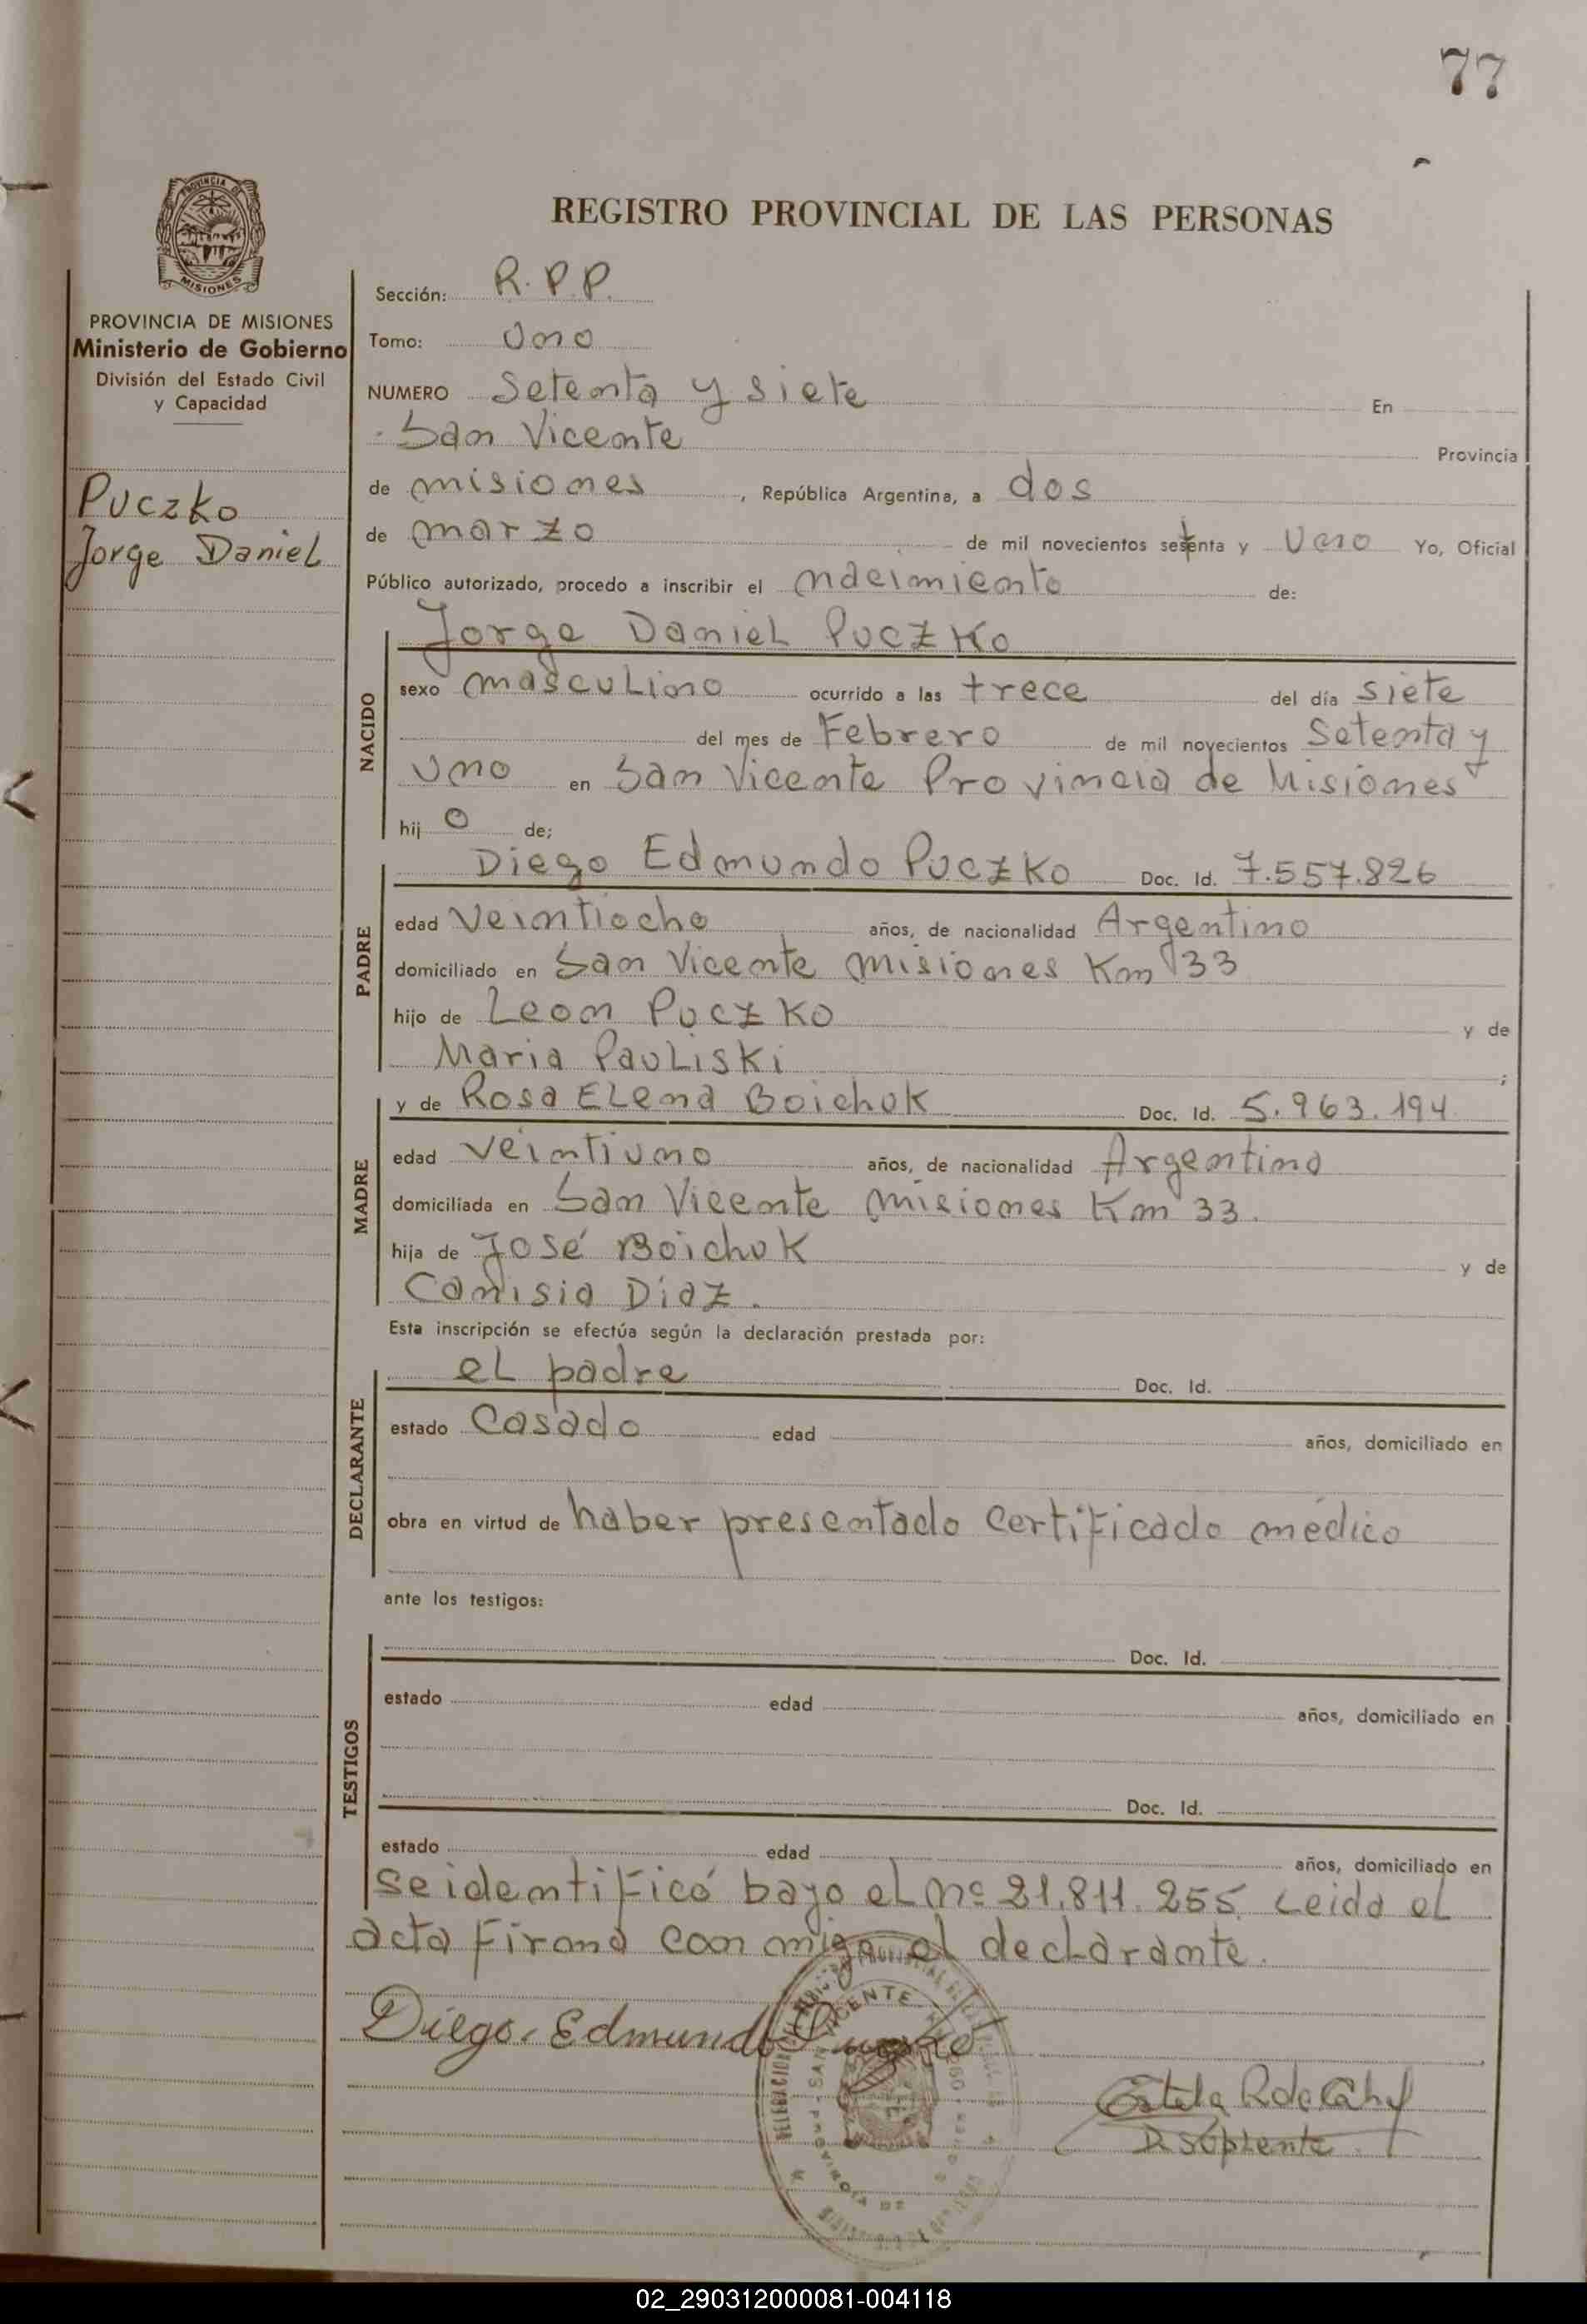 77
REGISTRO PROVINCIAL DE LAS PERSONAS
PROVINCIA DE
MISIONES
PROVINCIA DE MISIONES
Ministerio de Gobierno
División del Estado Civil
y Capacidad
Puczko
Jorge Daniel
Sección: R.P.P.
Tomo: Uno
NUMERO Setenta y siete En
San Vicente Provincia
de misiones, República Argentina, a dos
de marzo de mil novecientos setenta y Uno Yo, Oficial
Público autorizado, procedo a inscribir el nacimiento de:
NACIDO
Jorge Daniel Puczko
sexo masculino ocurrido a las trece del día siete
del mes de Febrero de mil novecientos Setenta y
Uno en San Vicente Provincia de Misiones
hij o de;
PADRE
Diego Edmundo Puczko Doc. Id. 7.557.826
edad Veintiocho años, de nacionalidad Argentino
domiciliado en San Vicente misiones Km 33
hijo de Leon Puczko y de
Maria Pauliski ;
MADRE
y de Rosa Elena Boichuk Doc. Id. 5.963.194
edad veintiuno años, de nacionalidad Argentina
domiciliada en San Vicente misiones Km 33.
hija de José Boichuk y de
Canisia Díaz.
Esta inscripción se efectúa según la declaración prestada por:
DECLARANTE
el padre Doc. Id.
estado Casado edad años, domiciliado en
obra en virtud de haber presentado certificado médico
ante los testigos:
TESTIGOS
Doc. Id.
estado edad años, domiciliado en
Doc. Id.
estado edad años, domiciliado en
se identificó bajo el nº 21.811.255. Leida el
acta firma con migo el declarante.
Diego Edmundo Puczko
SAN VICENTE
PROVINCIA DE
Estela R de
D. Suplente
02_290312000081-004118